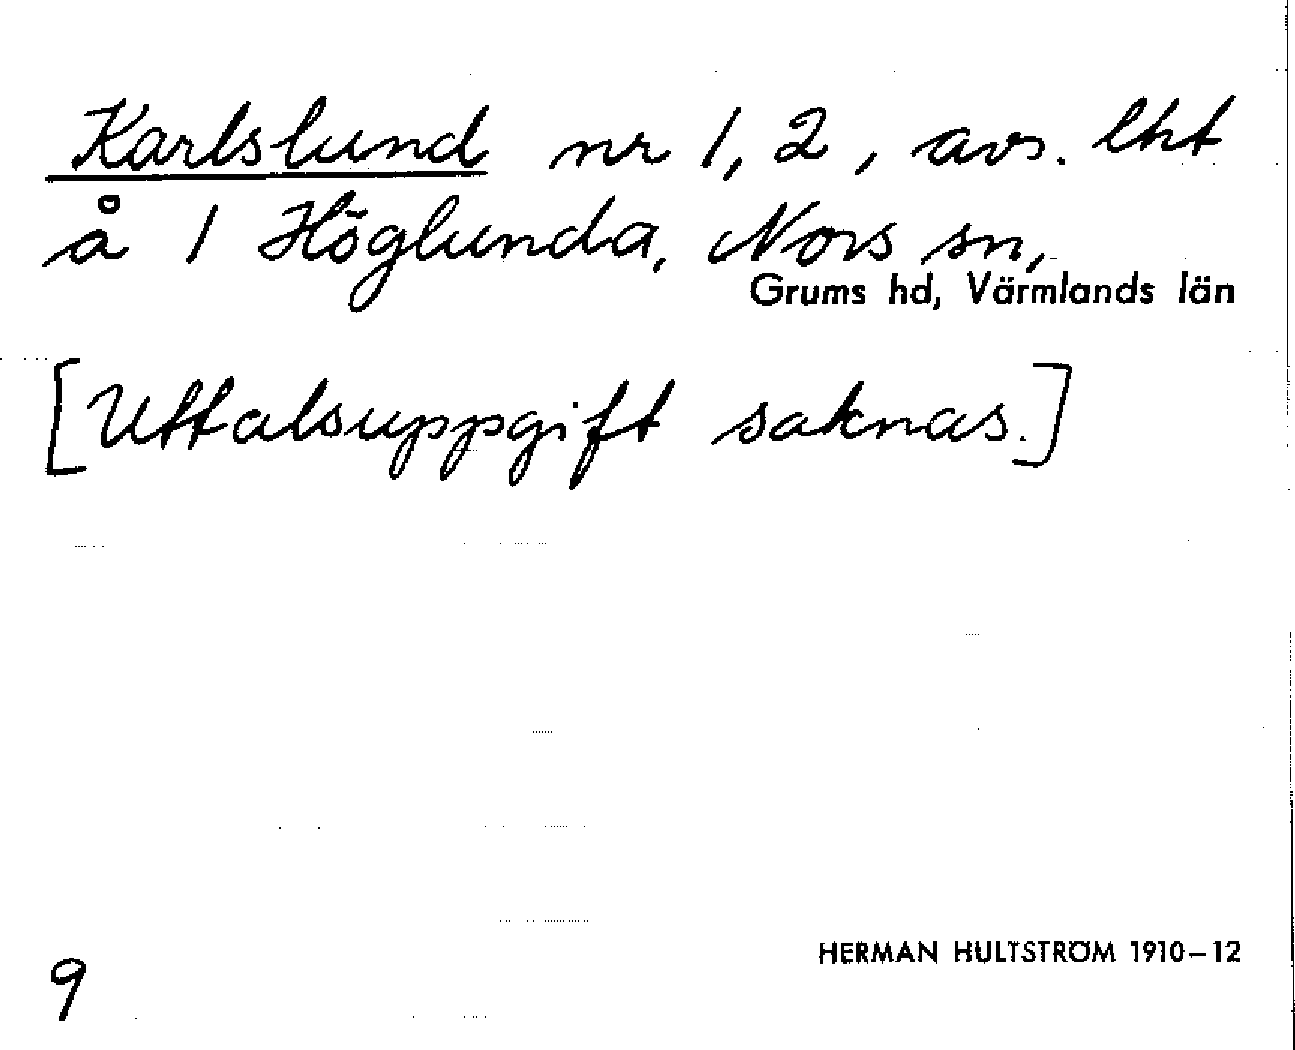 Karlslund nr 1, 2, avs. lht
å 1 Höglunda, Nors sn,
Grums hd, Värmlands län
[Uttalsuppgift saknas.]
HERMAN HULTSTRÖM 1910–12
9